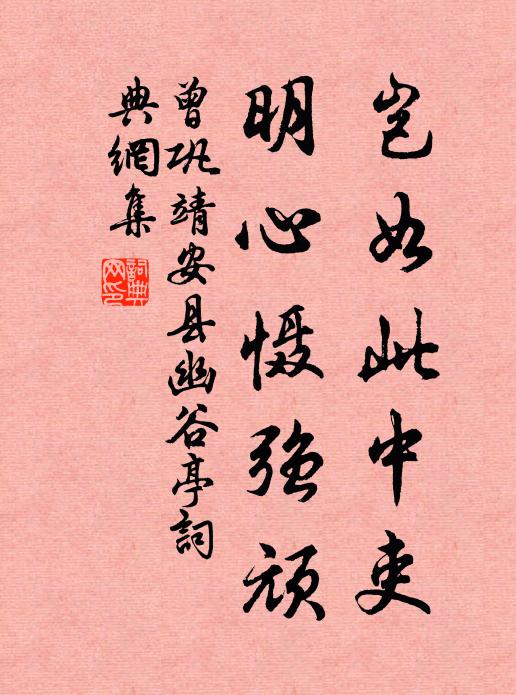 岂如此中吏
明心慑强顽
曾巩靖安县幽谷亭词
典網集
詞典网印